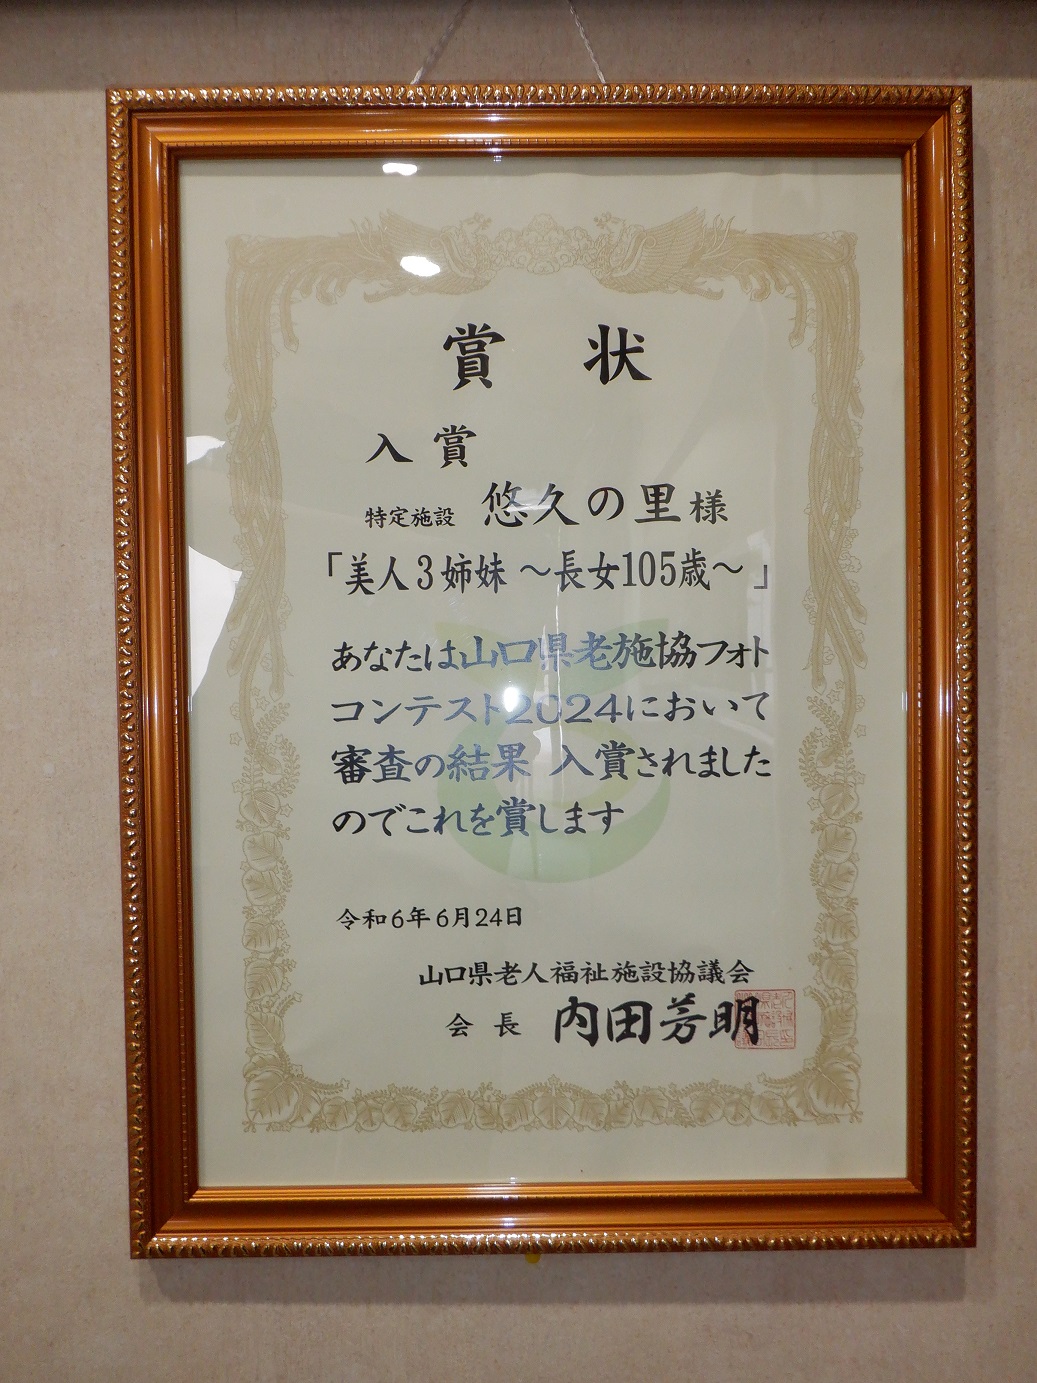 賞 状
入 賞
特定施設 悠久の里様
「美人3姉妹 ～長女105歳～」
あなたは山口県老施協フォト
コンテスト2024において
審査の結果 入賞されました
のでこれを賞します
令和6年6月24日
山口県老人福祉施設協議会
会 長 内田芳明